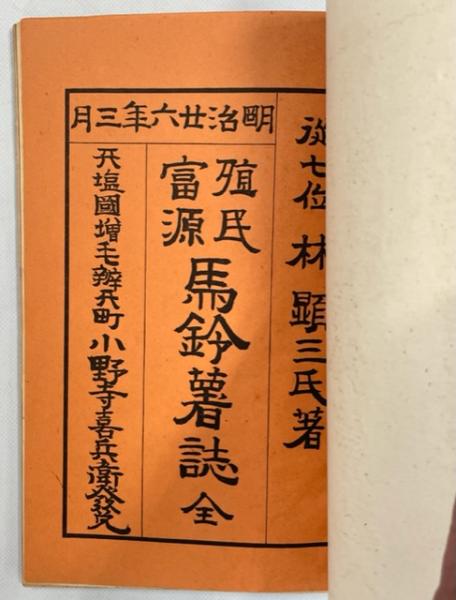 明治廿六年三月
從七位 林顕三氏著
殖民
富源
馬鈴薯誌 全
天塩國增毛辨天町 小野寺喜兵衛發兌